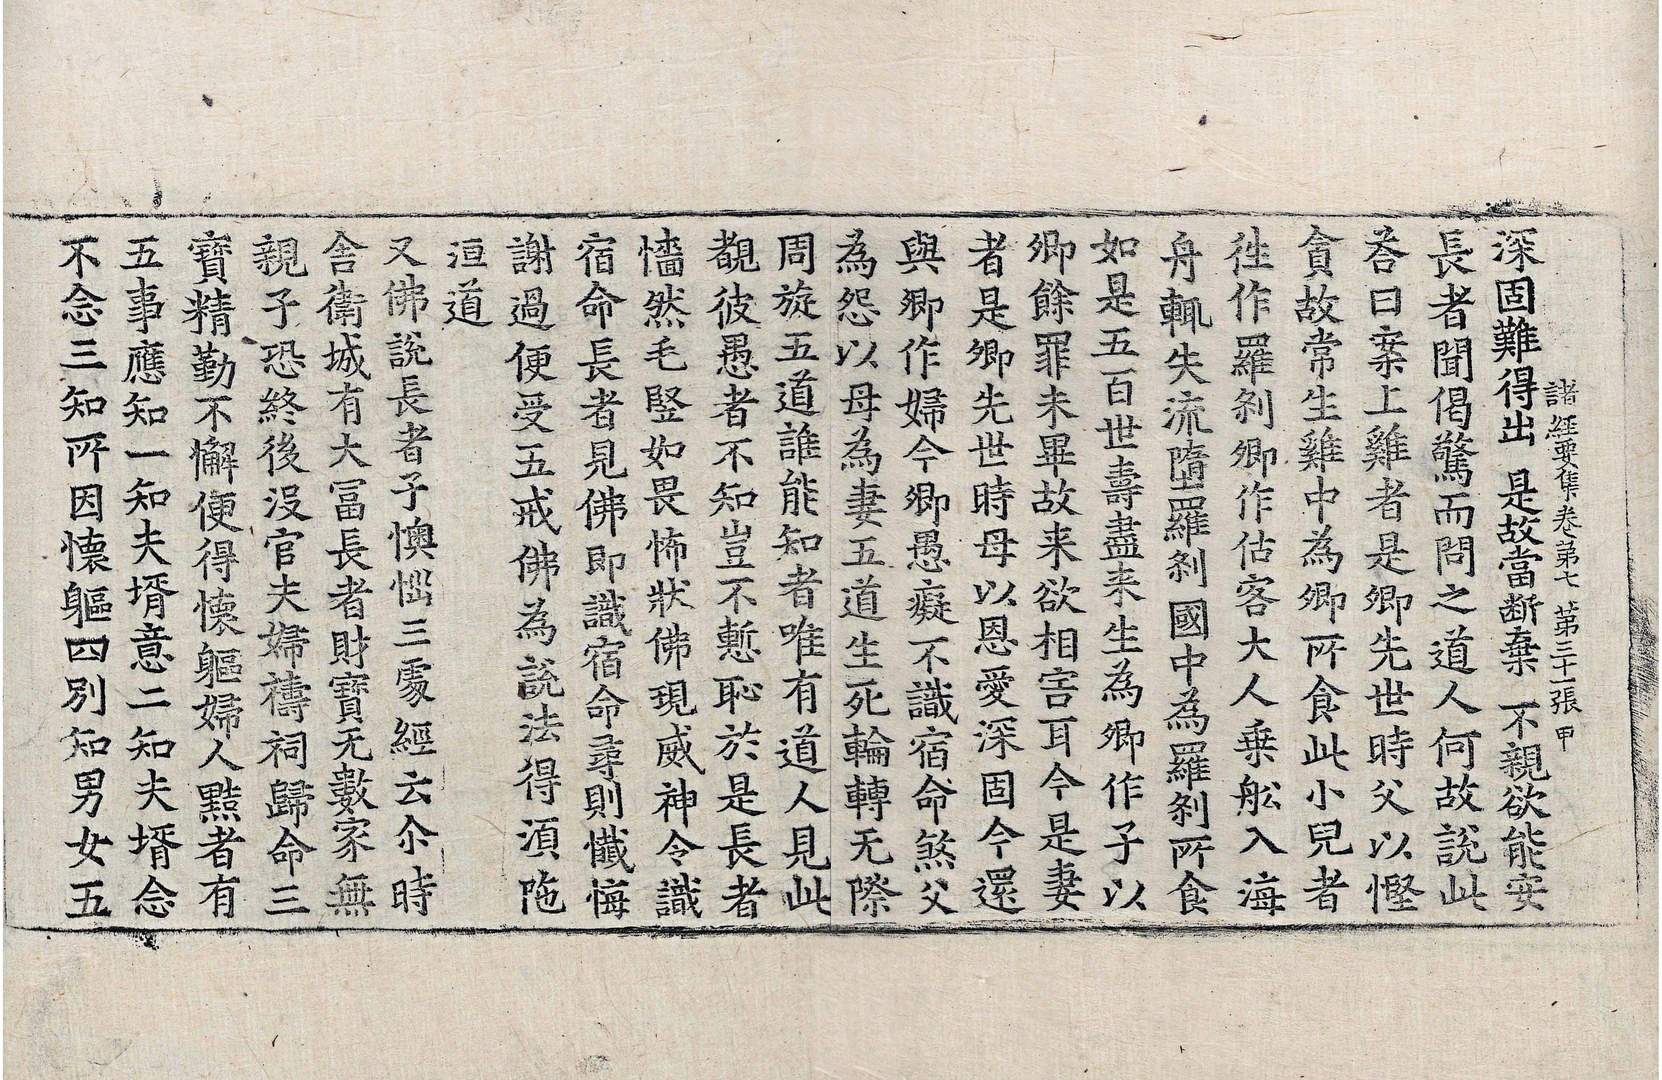 諸經要集卷第七　第三十一張　甲
深固難得出　是故當断棄　不親欲能安
長者聞偈驚而問之道人何故說此
荅曰案上雞者是卿先世時父以慳
貪故常生雞中為卿所食此小兒者
徃作羅剎卿作估客大人乗舩入海
舟輒失流墮羅剎國中為羅剎所食
如是五百世壽盡来生為卿作子以
卿餘罪未畢故来欲相害耳今是妻
者是卿先世時母以恩愛深固今還
與卿作婦今卿愚癡不識宿命煞父
為怨以母為妻五道生死輪轉无際
周旋五道誰能知者唯有道人見此
覩彼愚者不知豈不慙恥於是長者
㦝然毛竪如畏怖狀佛現威神令識
宿命長者見佛即識宿命尋則懺悔
謝過便受五戒佛為說法得湏陁
洹道
又佛說長者子懊惱三處經云尒時
舍衛城有大冨長者財寶无數家無
親子恐終後沒官夫婦禱祠歸命三
寶精勤不懈便得懐軀婦人黠者有
五事應知一知夫壻意二知夫壻念
不念三知所因懐軀四別知男女五